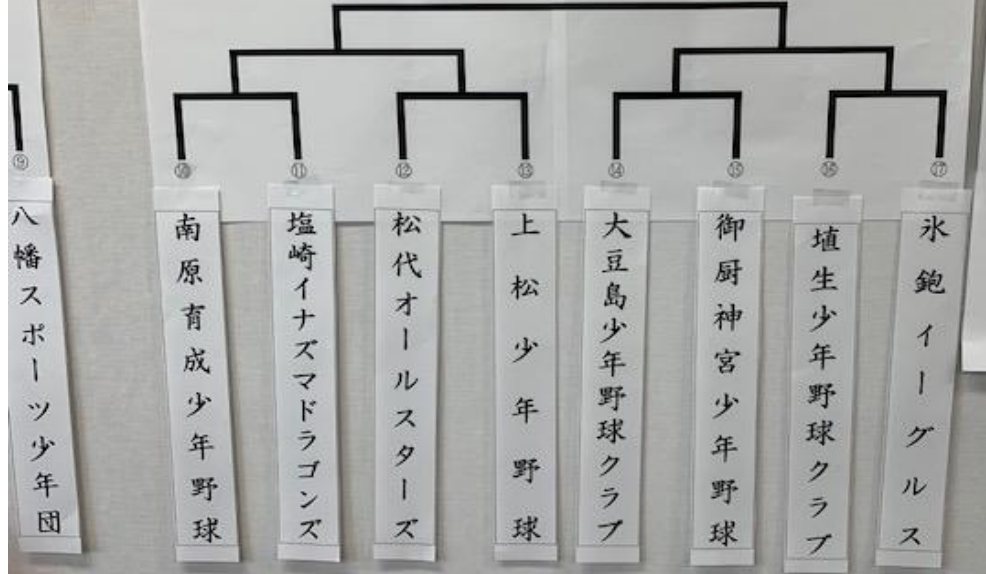 ⑨
八幡スポーツ少年団
⑩
南原育成少年野球
⑪
塩崎イナズマドラゴンズ
⑫
松代オールスターズ
⑬
上松少年野球
⑭
大豆島少年野球クラブ
⑮
御厨神宮少年野球
⑯
埴生少年野球クラブ
⑰
氷鉋イーグルス